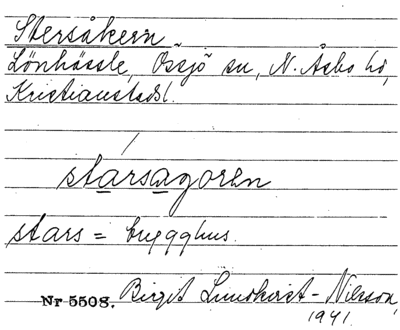 Stersåkern
Lönhässle, Össjö sn, N. Åsbo hd,
Kristianstadsl.
starsagoren
stars = brygghus
Nr 5508. Birgit Lundkvist-Nilsson,
1941